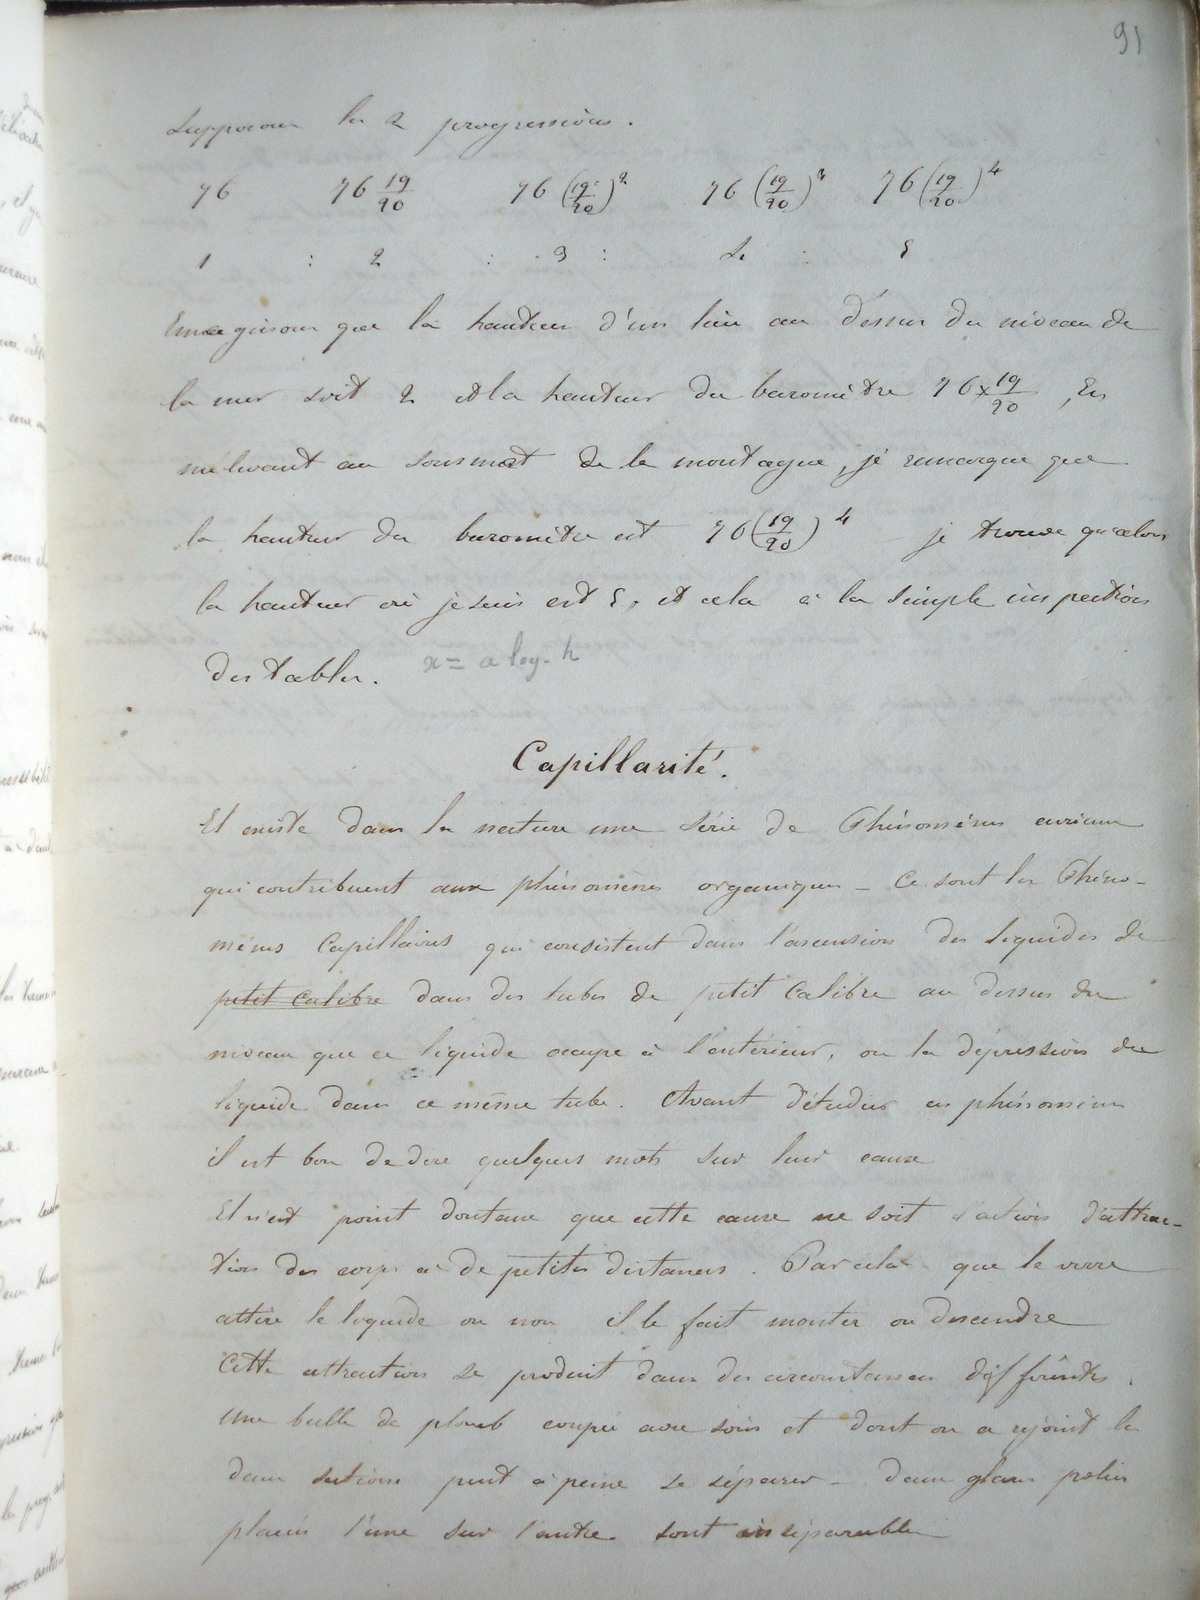 91
Supposons les 2 progressions.
76 76 19/20 76 (19/20)² 76 (19/20)³ 76 (19/20)⁴
1 : 2 : 3 : 4 : 5
Imaginons que la hauteur d'un lieu au dessus du niveau de
la mer soit 2 et la hauteur du baromètre 76 × 19/20, En
m'élevant au sommet de la montagne, je remarque que
la hauteur du baromètre est 76 (19/20)⁴ je trouve qu'alors
la hauteur où je suis est 5, et cela à la simple inspection
des tables. x = a log. h
Capillarité.
Il existe dans la nature une série de Phénomènes curieux
qui contribuent aux phénomènes organiques - Ce sont les Phéno-
mènes Capillaires qui consistent dans l'ascension des liquides de
petit calibre dans des tubes de petit Calibre au dessus du
niveau que ce liquide occupe à l'extérieur, ou la dépression du
liquide dans ce même tube. Avant d'étudier ces phénomènes
il est bon de dire quelques mots sur leur cause
Il n'est point douteux que cette cause ne soit l'action d'attrac-
tion des corps à de petites distances. Par cela que le verre
attire le liquide ou non il le fait monter ou descendre
Cette attraction se produit dans des circonstances différentes.
Une balle de plomb coupée avec soin et dont on a rejoint les
deux sections peut à peine se séparer - deux glaces polies
placées l'une sur l'autre sont inséparables